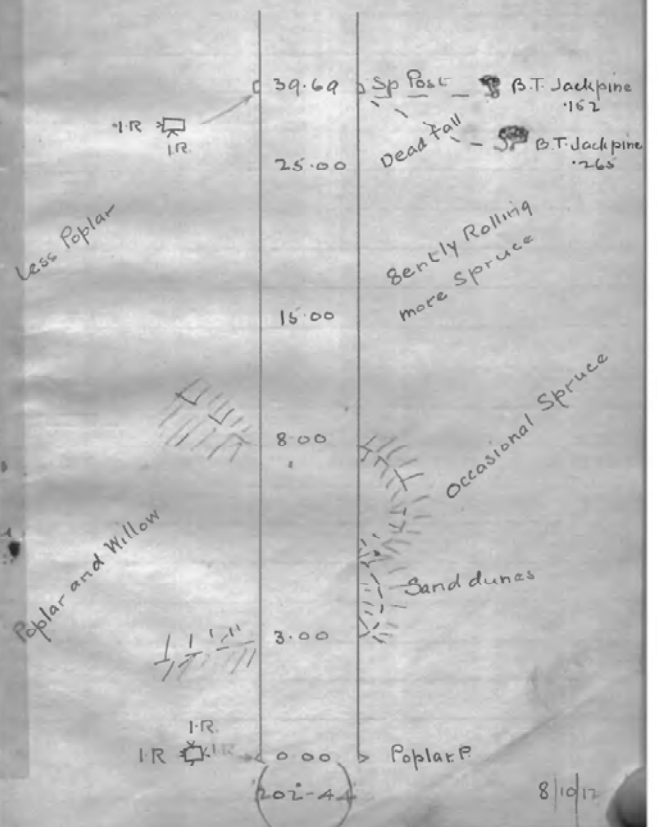 39.69 Sp Post B.T. Jackpine
.152
I.R
I.R.
Dead fall
B.T. Jackpine
.265
25.00
Less Poplar
Gently Rolling
more Spruce
15.00
8.00
Occasional Spruce
Poplar and Willow
Sand dunes
3.00
I.R.
I.R I.R
0.00 Poplar P.
202-4
8/10/12